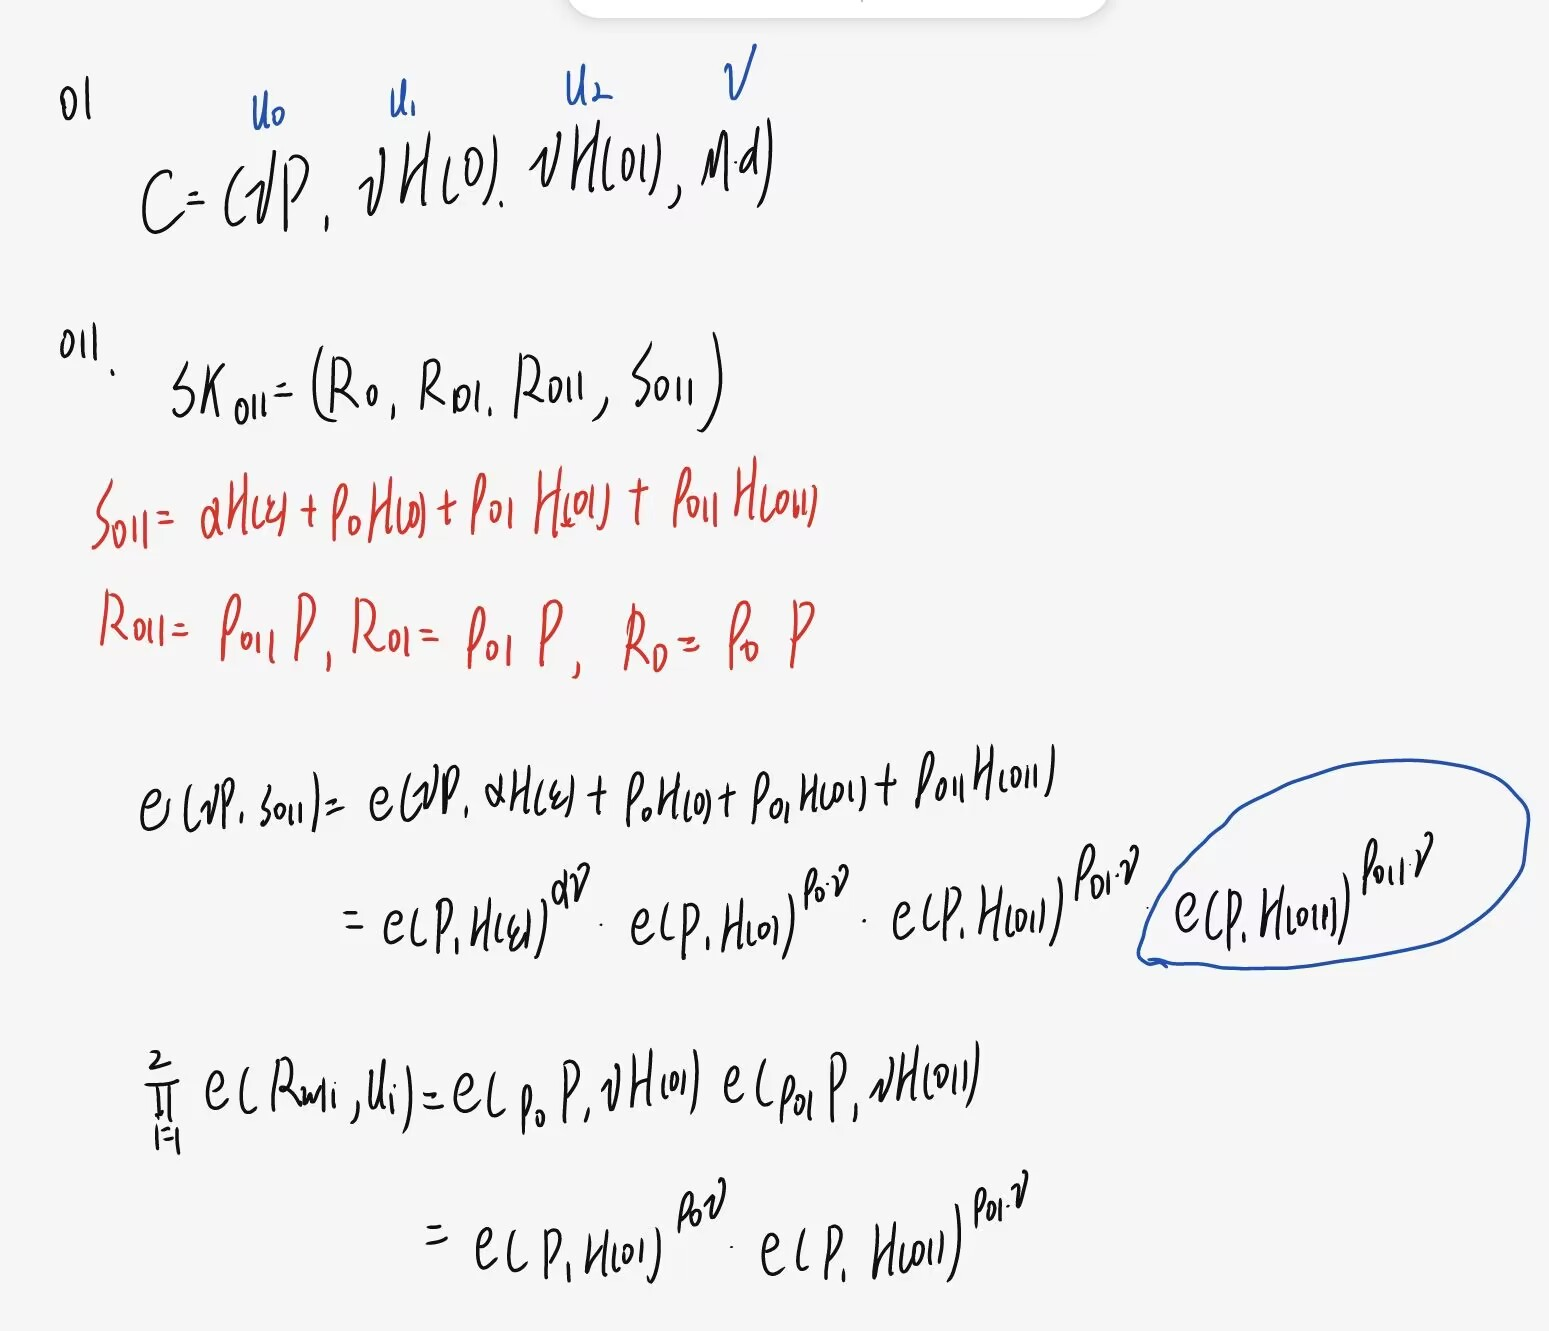 01
U₀ U₁ U₂ V
C = (νP, νH(0), νH(01), M·d)
011.
SK₀₁₁ = (R₀, R₀₁, R₀₁₁, S₀₁₁)
S₀₁₁ = αH(ε) + ρ₀H(0) + ρ₀₁ H(01) + ρ₀₁₁ H(011)
R₀₁₁ = ρ₀₁₁ P, R₀₁ = ρ₀₁ P, R₀ = ρ₀ P
e(νP, S₀₁₁) = e(νP, αH(ε) + ρ₀H(0) + ρ₀₁H(01) + ρ₀₁₁H(011)
= e(P, H(ε))^αν · e(P, H(0))^ρ₀·ν · e(P, H(01))^ρ₀₁·ν · e(P, H(011))^ρ₀₁₁·ν
∏_{i=1}^{2} e(R_{w|i}, U_i) = e(ρ₀P, νH(0)) e(ρ₀₁P, νH(01))
= e(P, H(0))^ρ₀ν · e(P, H(01))^ρ₀₁·ν